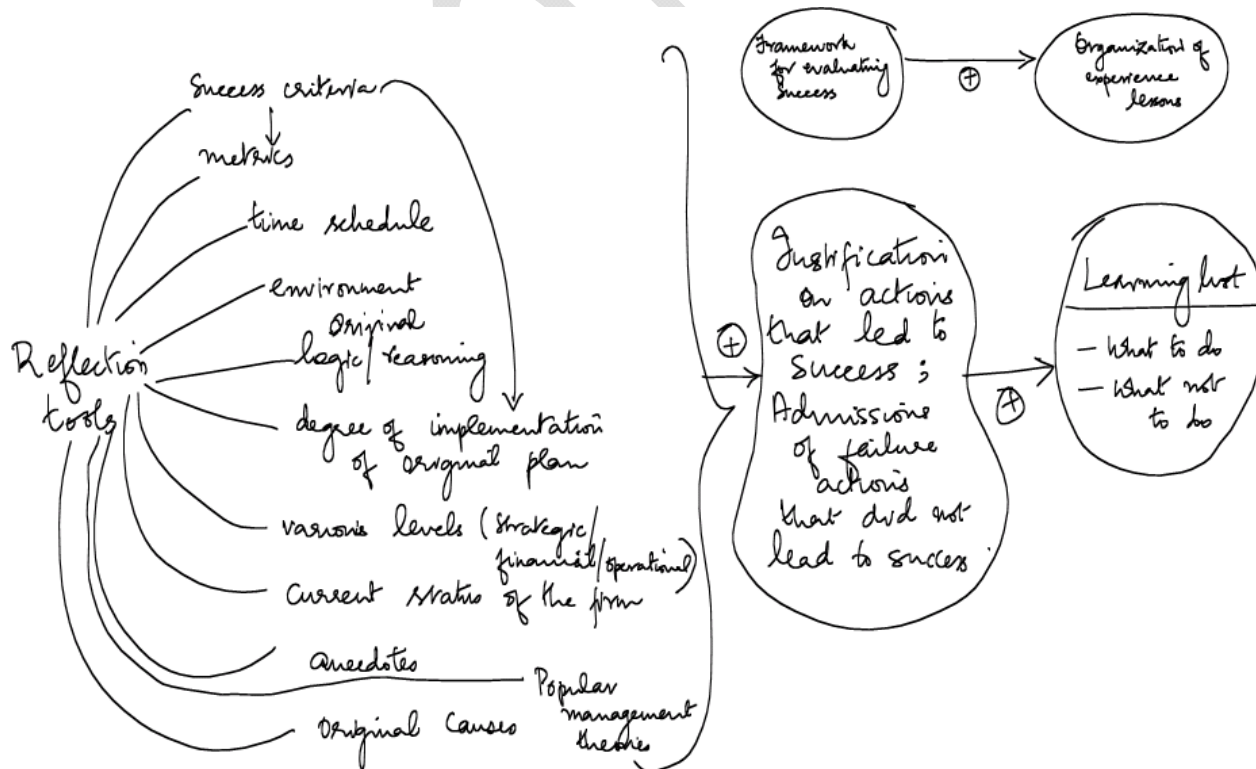 Success criteria
metrics
time schedule
environment
original
logic/reasoning
Reflection
tools
degree of implementation
of original plan
various levels (strategic/
financial/operational)
current status of the firm
anecdotes
Popular
management
theories
original causes
Framework
for evaluating
success
+
Organization of
experience
lessons
+
Justification
on actions
that led to
success;
Admissions
of failure
actions
that did not
lead to success.
+
Learning list
- What to do
- What not
to do